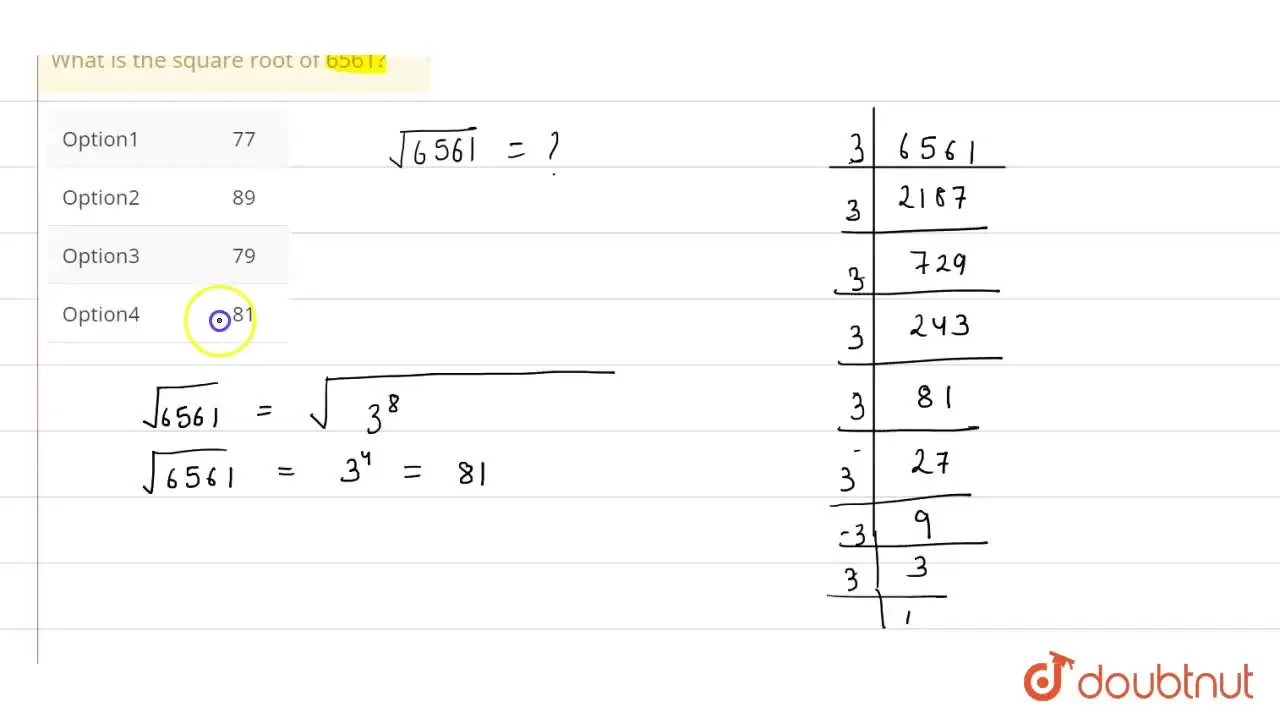 What is the square root of 6561?
Option1 77
Option2 89
Option3 79
Option4 81
√6561 = ?
√6561 = √3^8
√6561 = 3^4 = 81
3 | 6561
3 | 2187
3 | 729
3 | 243
3 | 81
3 | 27
3 | 9
3 | 3
| 1
doubtnut